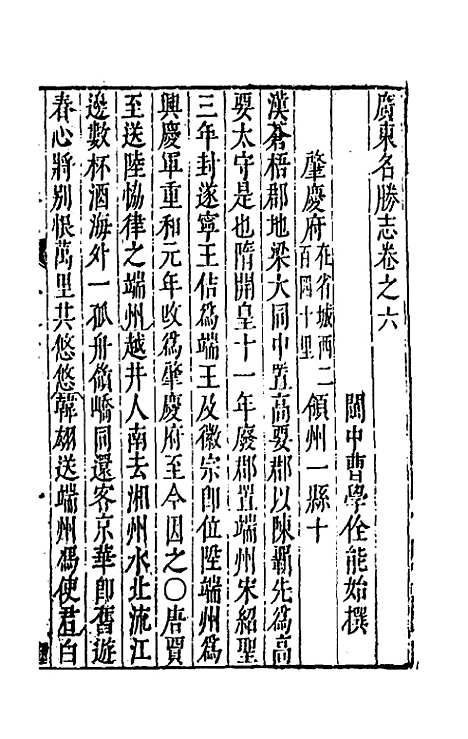 廣東名勝志卷之六
閩中曹學佺能始撰
肇慶府在省城西二百四十里領州一縣十
漢蒼梧郡地梁大同中置高要郡以陳霸先爲高
要太守是也隋開皇十一年廢郡置端州宋紹聖
三年封遂寧王佶爲端王及徽宗卽位陞端州爲
興慶軍重和元年改爲肇慶府至今因之〇唐賈
至送陸協律之端州越井人南去湘州水北流江
邊數杯酒海外一孤舟嶺嶠同還客京華卽舊遊
春心將別恨萬里共悠悠韓翃送端州馮使君白